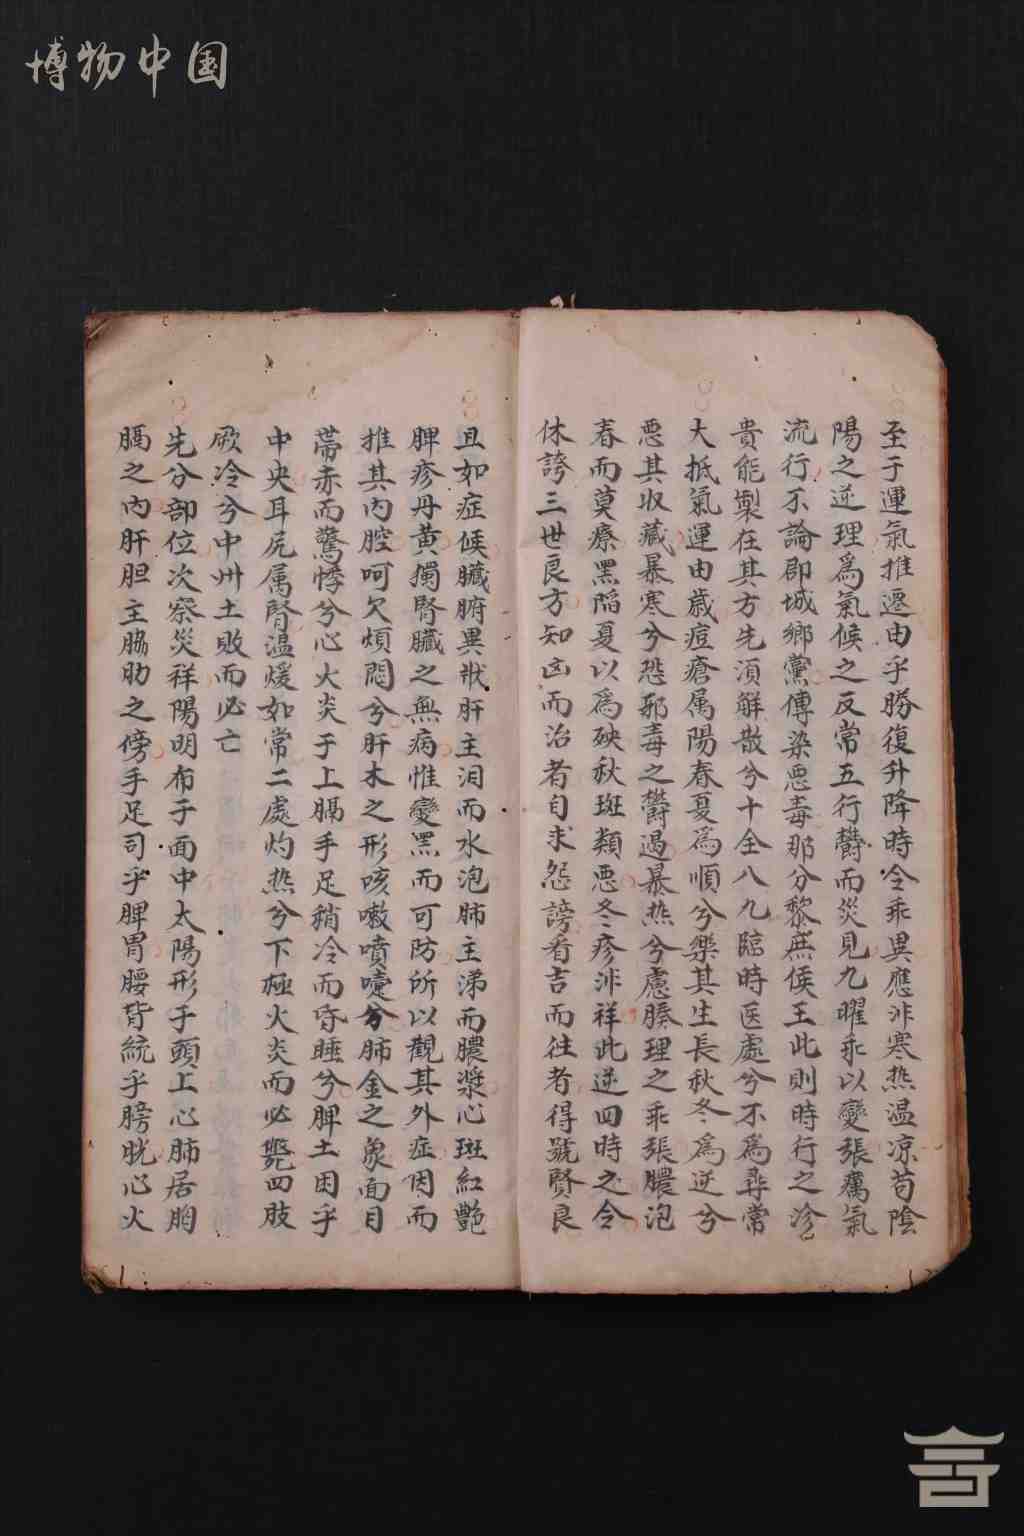 博物中国
至于運氣推遷由乎勝復升降時令乖異應非寒热温凉苟陰
陽之逆理為氣候之反常五行欝而災見九曜乖以變張癘氣
流行不論郡城鄉黨傳染悪毒那分黎庶侯王此則時行之沴
貴能製在其方先須觧散兮十全八九臨時医處兮不為尋常
大抵氣運由歲痘瘡属陽春夏為順兮樂其生長秋冬為逆兮
悪其收藏暴寒兮恐邪毒之欝遏暴热兮慮腠理之乖張膿泡
春而莫療黑陷夏以為殃秋斑類悪冬疹非祥此逆四時之令
休誇三世良方知凶而治者自求怨謗看吉而往者得號賢良
且如症候臟腑異狀肝主泪而水泡肺主涕而膿漿心斑紅艶
脾疹丹黄獨腎臟之無病惟變黑而可防所以觀其外症因而
推其内腔呵欠煩悶兮肝木之形咳嗽噴嚏兮肺金之象面目
帶赤而驚悸兮心火炎于上膈手足稍冷而昏睡兮脾土困乎
中央耳尻属腎温煖如常二處灼热兮下極火炎而必斃四肢
厥冷兮中州土敗而必亡
先分部位次察災祥陽明布于面中太陽形于頭上心肺居胸
膈之内肝胆主脇肋之傍手足司乎脾胃腰背統乎膀胱心火